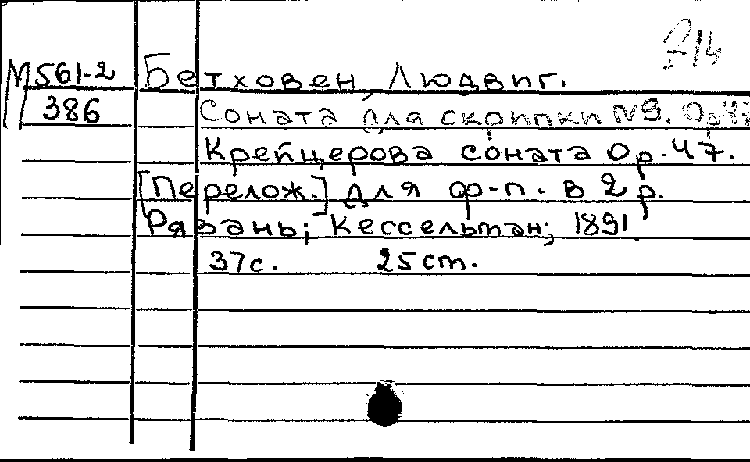 М561-2 Бетховен, Людвиг.
386 Соната для скрипки №9. Op.
Крейцерова соната Op. 47.
[Перелож.] для ф-п. в 2 р.
Рязань; Кессельман; 1891.
37с. 25cm.